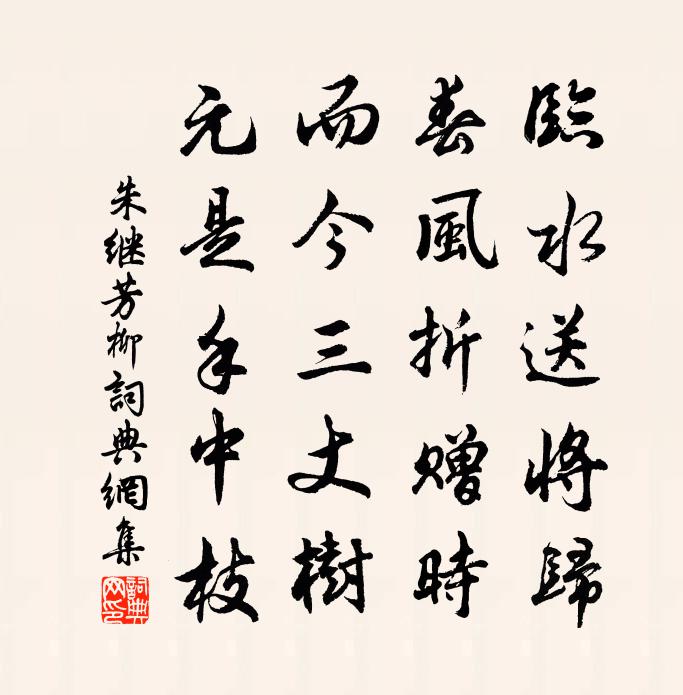 臨水送將歸
春風折贈時
而今三丈樹
元是手中枝
朱继芳柳詞典網集
詞典網印